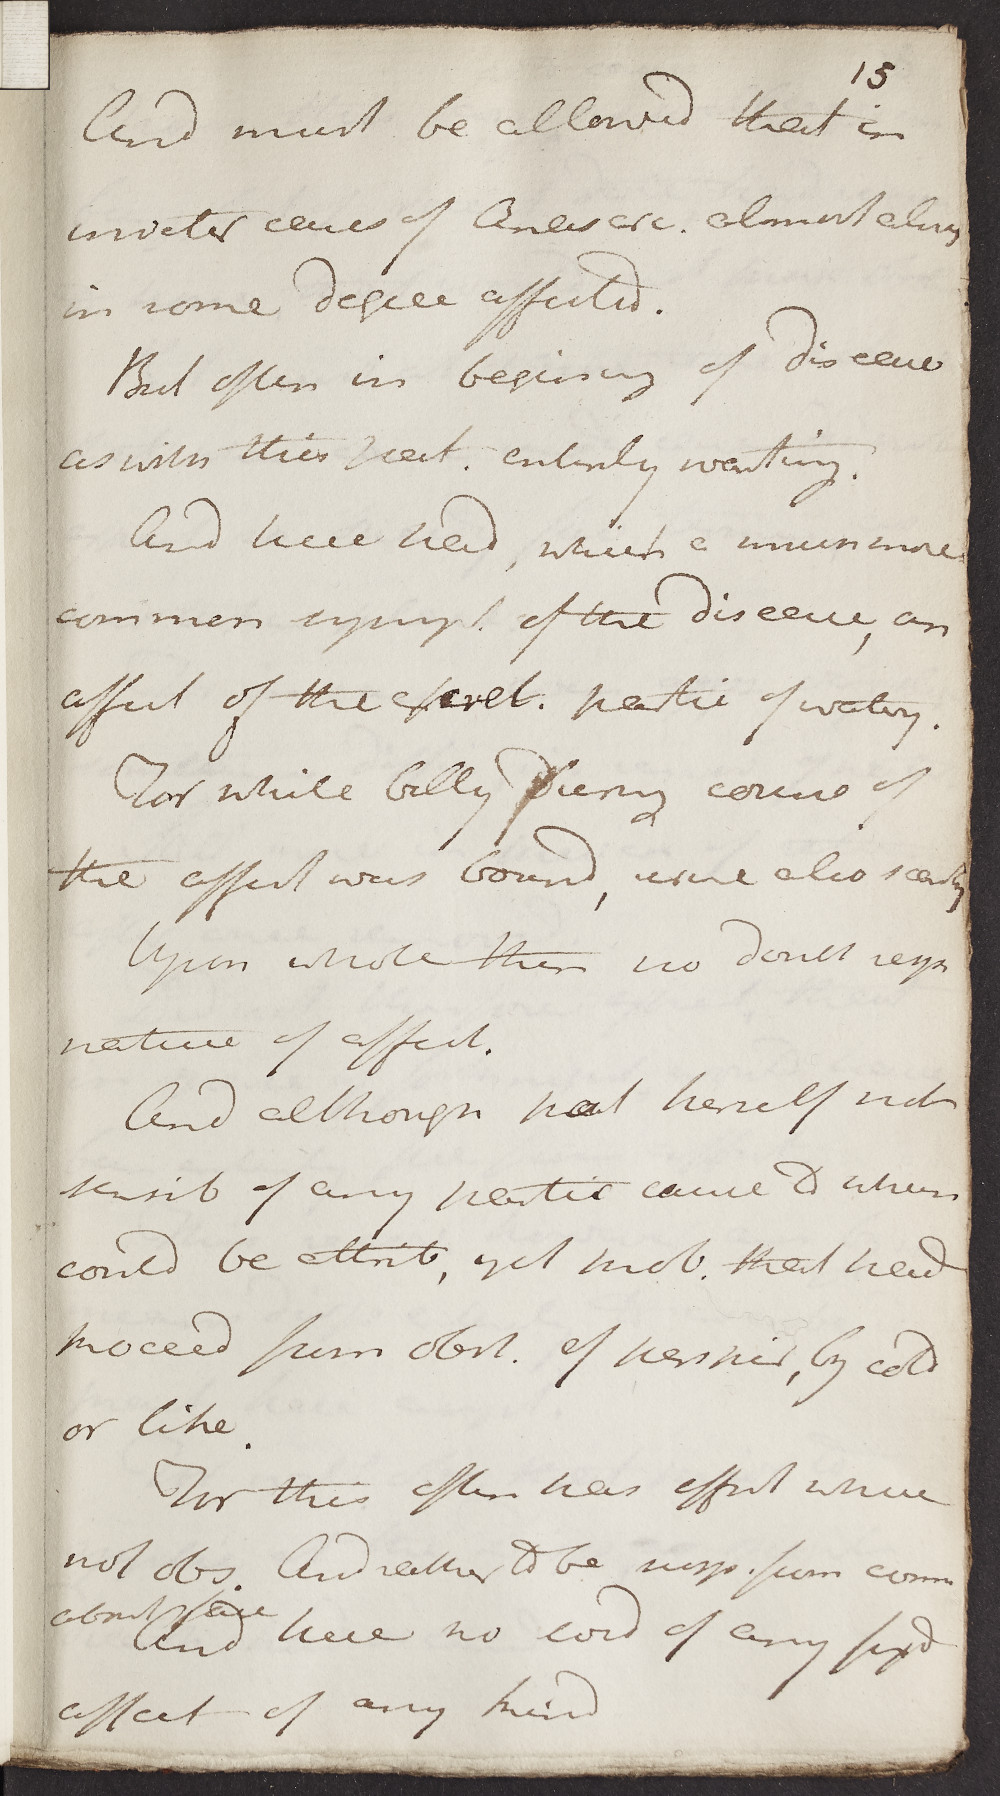 15
And must be allowed that in
inveter cases of Anasarc. almost alway
in some degree affected.
But often in beginning of disease
as with this Pat. entirely wanting.
And here had, which a much more
common sympt. of the disease, an
affect of the excret. partic of watery.
For while belly during course of
the affect was bound, urine also scanty
Upon whole then no doubt resp
nature of affect.
And although pat herself not
sensib of any partic cause to whch
could be attrib, yet prob. that had
proceed from obst. of perspir, by cold
or like.
For this often has effect where
not obs. And rather to be susp. from comm
about face
And here no evid of any fixd
affect of any kind